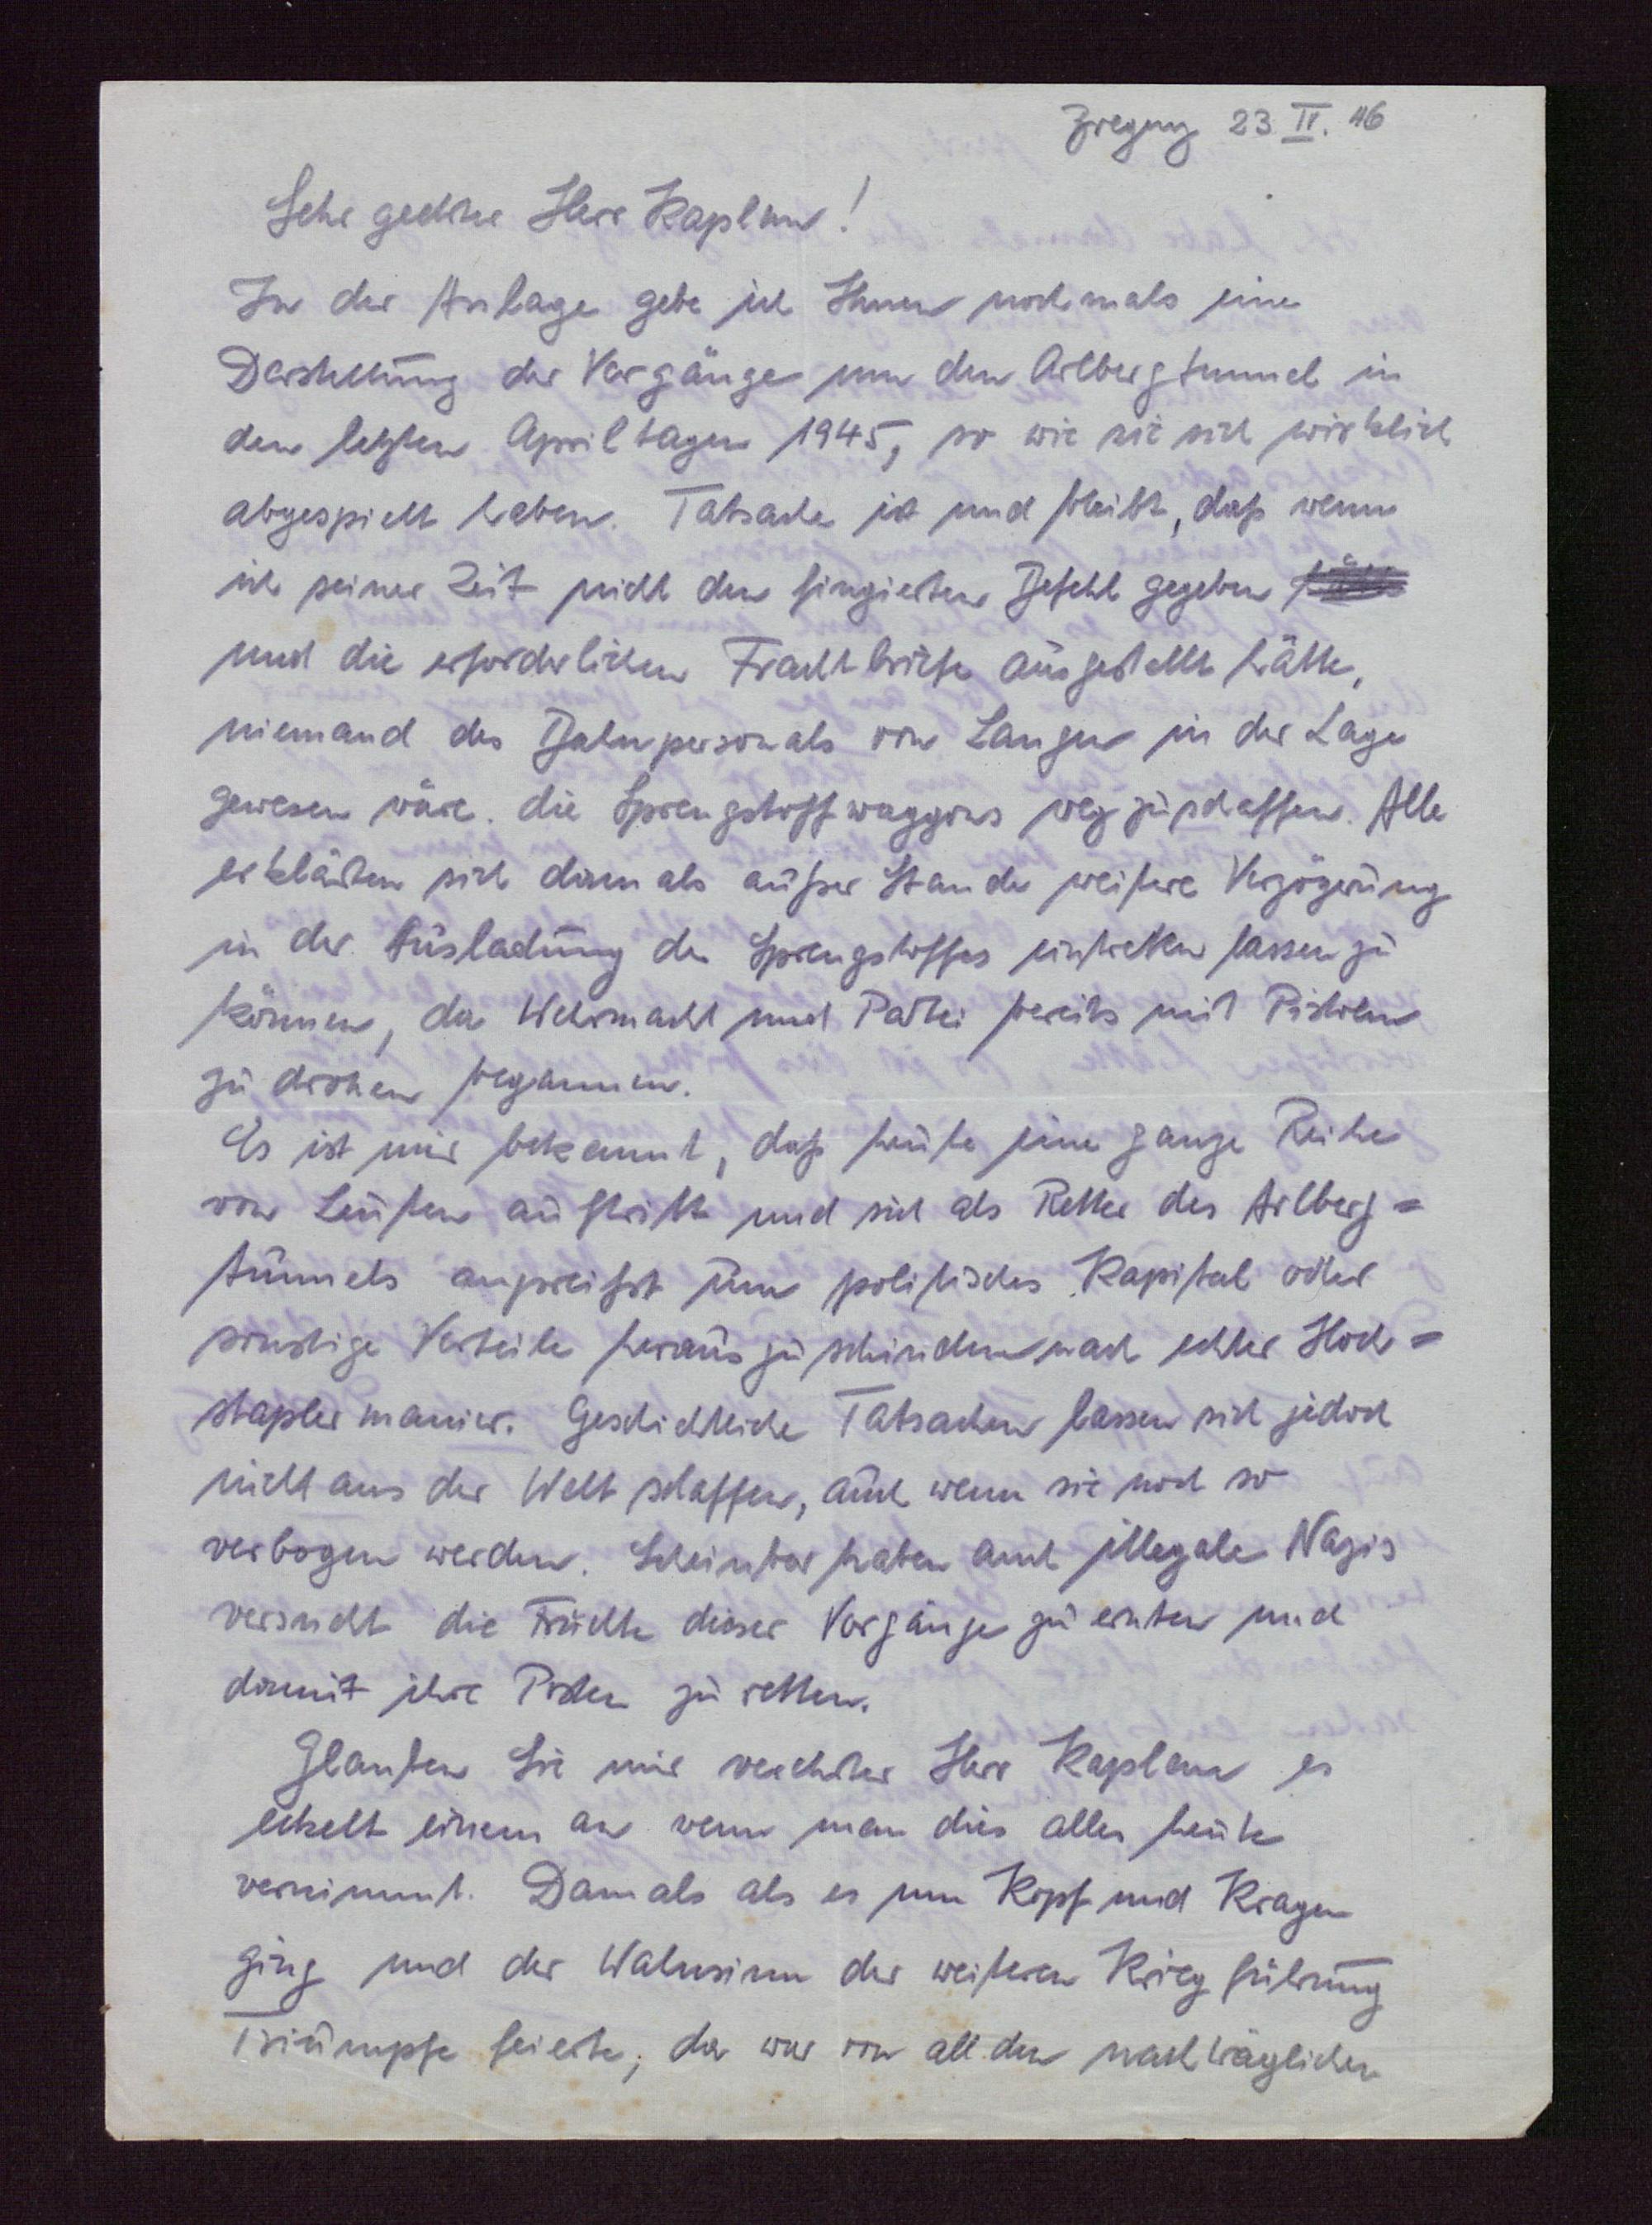 Bregenz 23 II. 46
Sehr geehrter Herr Kaplan!
In der Anlage gebe ich Ihnen nochmals eine
Darstellung der Vorgänge um den Arlbergtunnel in
den letzten Apriltagen 1945, so wie sie sich wirklich
abgespielt haben. Tatsache ist und bleibt, daß wenn
ich seiner Zeit nicht den fingierten Befehl gegeben
und die erforderlichen Frachtbriefe ausgestellt hätte,
niemand des Bahnpersonals von Langen in der Lage
gewesen wäre die Sprengstoffwaggons wegzuschaffen. Alle
erklärten sich damals außer Stande weitere Verzögerung
in der Ausladung des Sprengstoffes eintreten lassen zu
können, da Wehrmacht und Partei bereits mit Pistolen
zu drohen begannen.
Es ist mir bekannt, daß heute eine ganze Reihe
von Leuten auftritt und sich als Retter des Arlberg=
tunnels anpreißt um politisches Kapital oder
sonstige Vorteile herauszuschinden nach echter Hoch=
staplermanier. Geschichtliche Tatsachen lassen sich jedoch
nicht aus der Welt schaffen, auch wenn sie noch so
verbogen werden. Scheinbar haben auch illegale Nazis
versucht die Früchte dieser Vorgänge zu ernten und
damit ihre Posten zu retten.
Glauben Sie mir verehrter Herr Kaplan es
eckelt einem an wenn man dies alles heute
vernimmt. Damals als es um Kopf und Kragen
ging und der Wahnsinn der weiteren Kriegführung
Triumpfe feierte, da war von all den nachträglichen